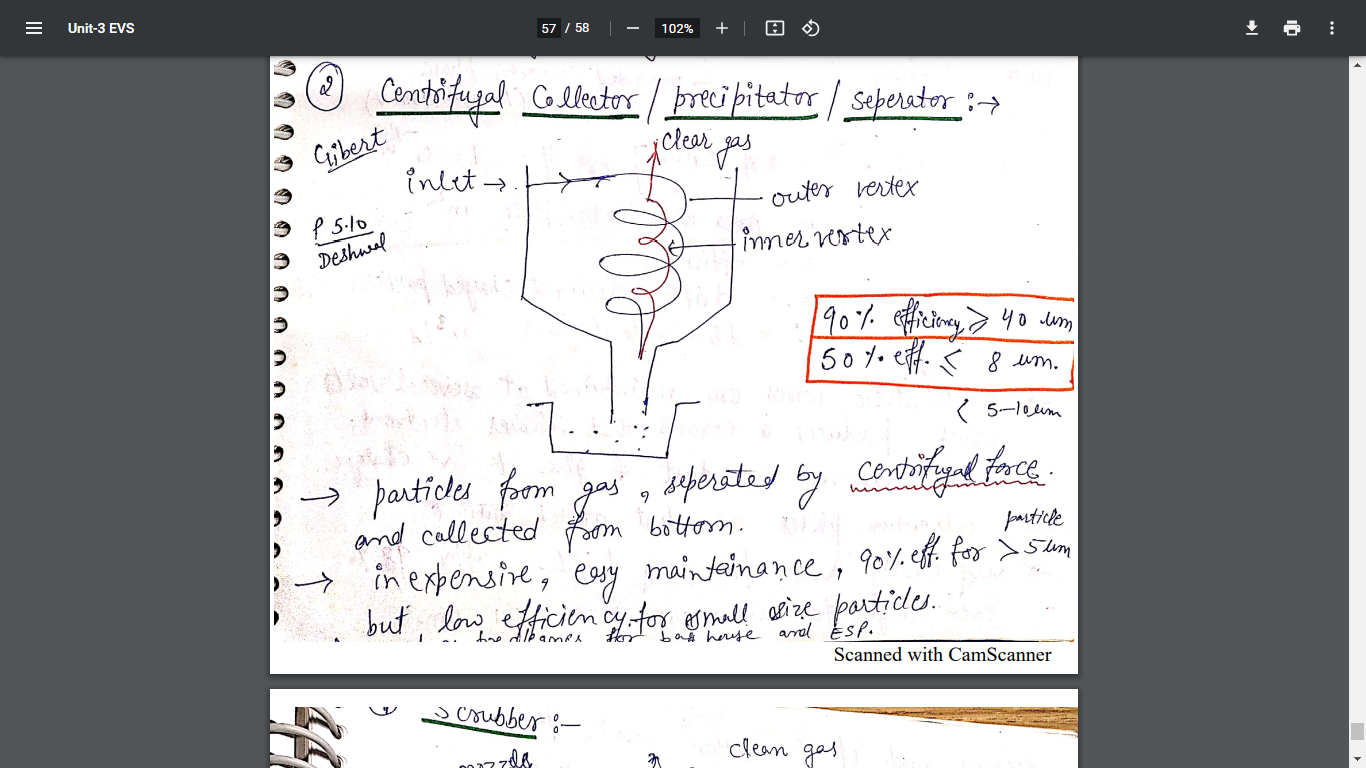 Unit-3 EVS
57 / 58
102%
2 Centrifugal Collector / precipitator / seperator :→
Gilbert
clear gas
inlet →
outer vertex
P 5.10
Deshwal
inner vertex
90% efficiency ≥ 40 um
50% eff. ≤ 8 um.
< 5-10um
→ particles from gas, seperated by centrifugal force.
and collected from bottom.
particle
→ inexpensive, easy maintainance, 90% eff. for > 5um
but low efficiency for small size particles.
for bag house and ESP.
Scanned with CamScanner
Scrubber :-
clean gas